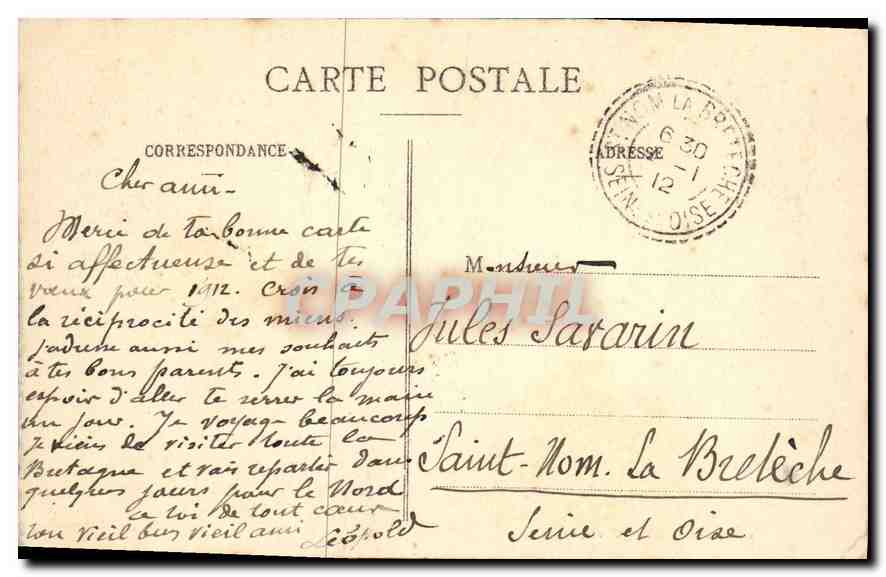 CARTE POSTALE
CORRESPONDANCE
ADRESSE
ST NOM LA BRETECHE
6 30
-1
12
SEINE-ET-OISE
Cher ami-
Merci de ta bonne carte
si affectueuse et de tes
vœux pour 1912. Crois à
la réciprocité des miens.
J'adresse aussi mes souhaits
à tes bons parents. J'ai toujours
espoir d'aller te serrer la main
un jour. Je voyage beaucoup
Je viens de visiter toute la
Bretagne et vais repartir dans
quelques jours pour le Nord
a toi de tout cœur
ton vieil ami
Léopold
Monsieur
Jules Savarin
Saint-Nom. La Bretèche
Seine et Oise
CPAPHIL